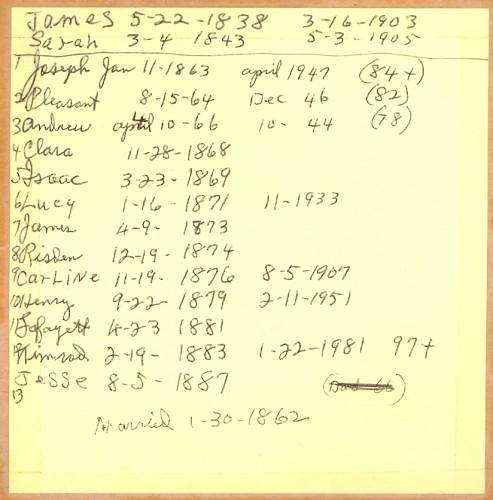 James 5-22-1838 3-16-1903
Sarah 3-4 1843 5-3-1905
1 Joseph Jan 11-1863 april 1947 (84+)
2 Pleasant 8-15-64 Dec 46 (82)
3 andrew april 10-66 10- 44 (78)
4 Clara 11-28-1868
5 Isaac 3-23-1869
6 Lucy 1-16-1871 11-1933
7 James 4-9- 1873
8 Risden 12-19-1874
9 CarLiNe 11-19-1876 8-5-1907
10 Henry 9-22 1879 2-11-1951
11 Lafayett 4-23 1881
12 Nimrod 2-19-1883 1-22-1981 97+
Jesse 8-5-1887
13
Married 1-30-1862